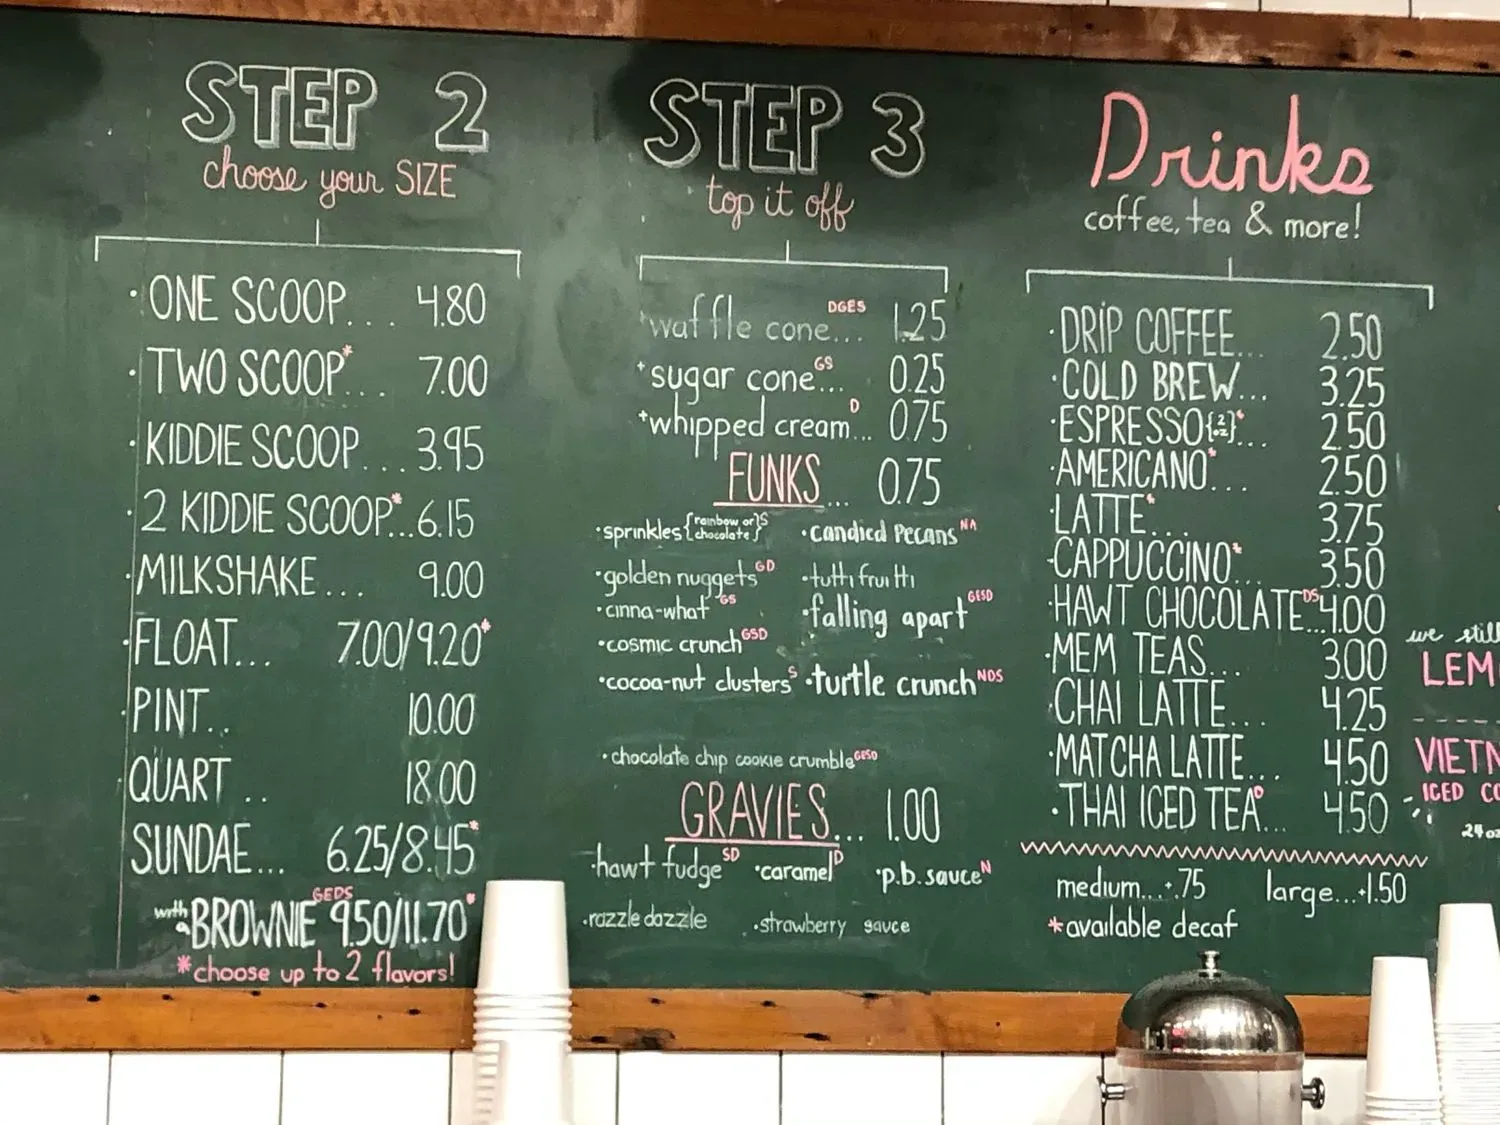 STEP 2
choose your SIZE
· ONE SCOOP... 4.80
· TWO SCOOP*... 7.00
· KIDDIE SCOOP... 3.95
· 2 KIDDIE SCOOP*... 6.15
· MILKSHAKE... 9.00
· FLOAT... 7.00/9.20*
· PINT.. 10.00
· QUART .. 18.00
SUNDAE... 6.25/8.45*
with a BROWNIE GEDS 9.50/11.70*
*choose up to 2 flavors!
STEP 3
top it off
waffle cone... DGES 1.25
+sugar cone GS... 0.25
+whipped cream D... 0.75
FUNKS... 0.75
·sprinkles {rainbow or chocolate} S ·candied pecans NA
·golden nuggets GD ·tutti fruitti
·cinna-what GS ·falling apart GESD
·cosmic crunch GSD
·cocoa-nut clusters S ·turtle crunch NDS
·chocolate chip cookie crumble GESD
GRAVIES... 1.00
·hawt fudge SD ·caramel D ·p.b. sauce N
·razzle dazzle ·strawberry sauce
Drinks
coffee, tea & more!
·DRIP COFFEE... 2.50
·COLD BREW... 3.25
·ESPRESSO {2 oz}*... 2.50
·AMERICANO*... 2.50
·LATTE*... 3.75
·CAPPUCCINO*... 3.50
·HAWT CHOCOLATE DS... 4.00
·MEM TEAS... 3.00
·CHAI LATTE... 4.25
·MATCHA LATTE... 4.50
·THAI ICED TEA D... 4.50
medium...+.75 large...+1.50
*available decaf
we still
LEM
VIETN
ICED CO
24 oz